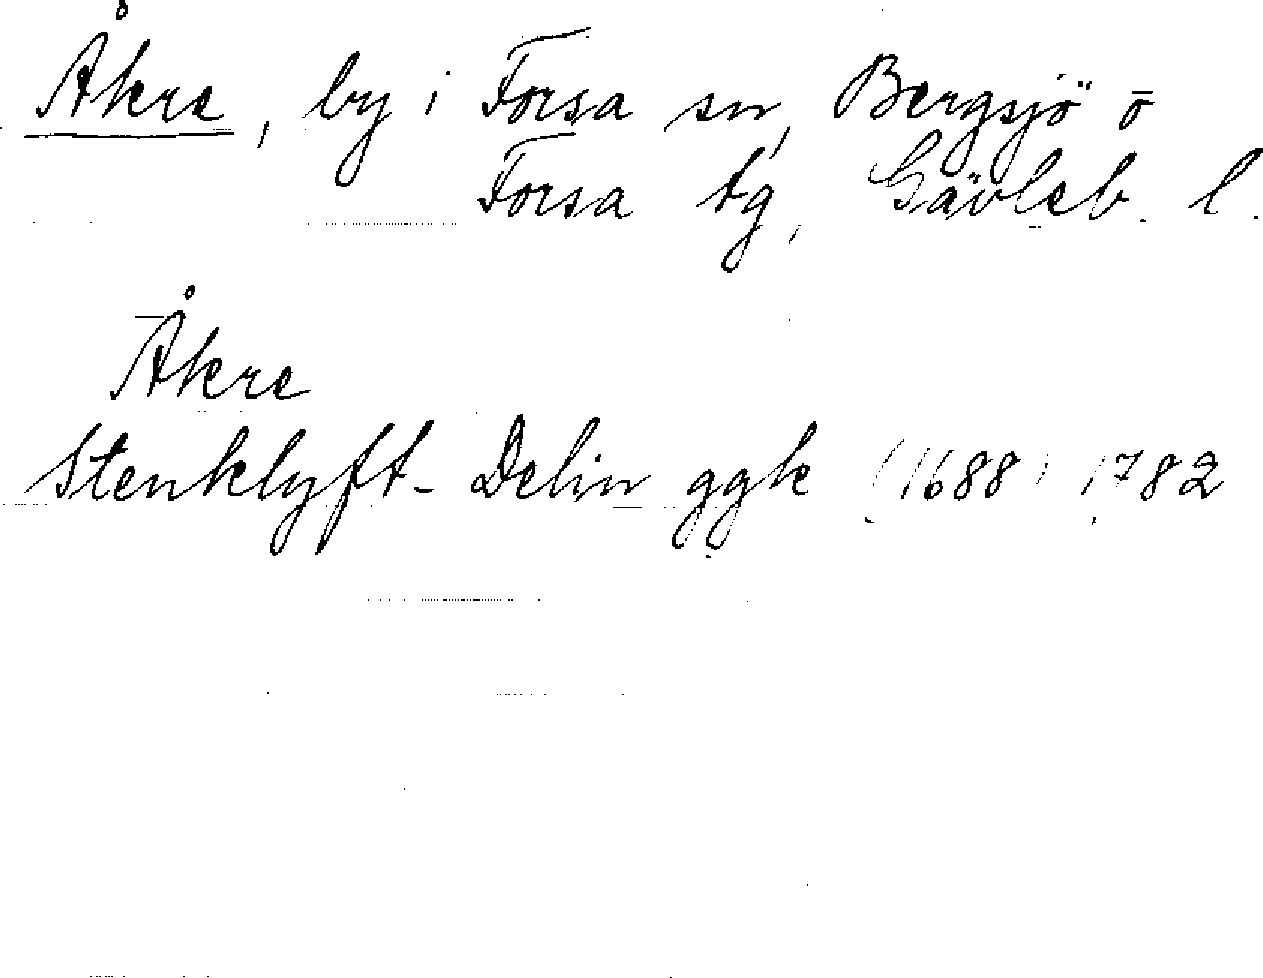 Åkre, by i Forsa sn, Bergsjö o
Forsa tg, Gävleb. l.
Åkre
Stenklyft- Delin ggk (1688) 1782